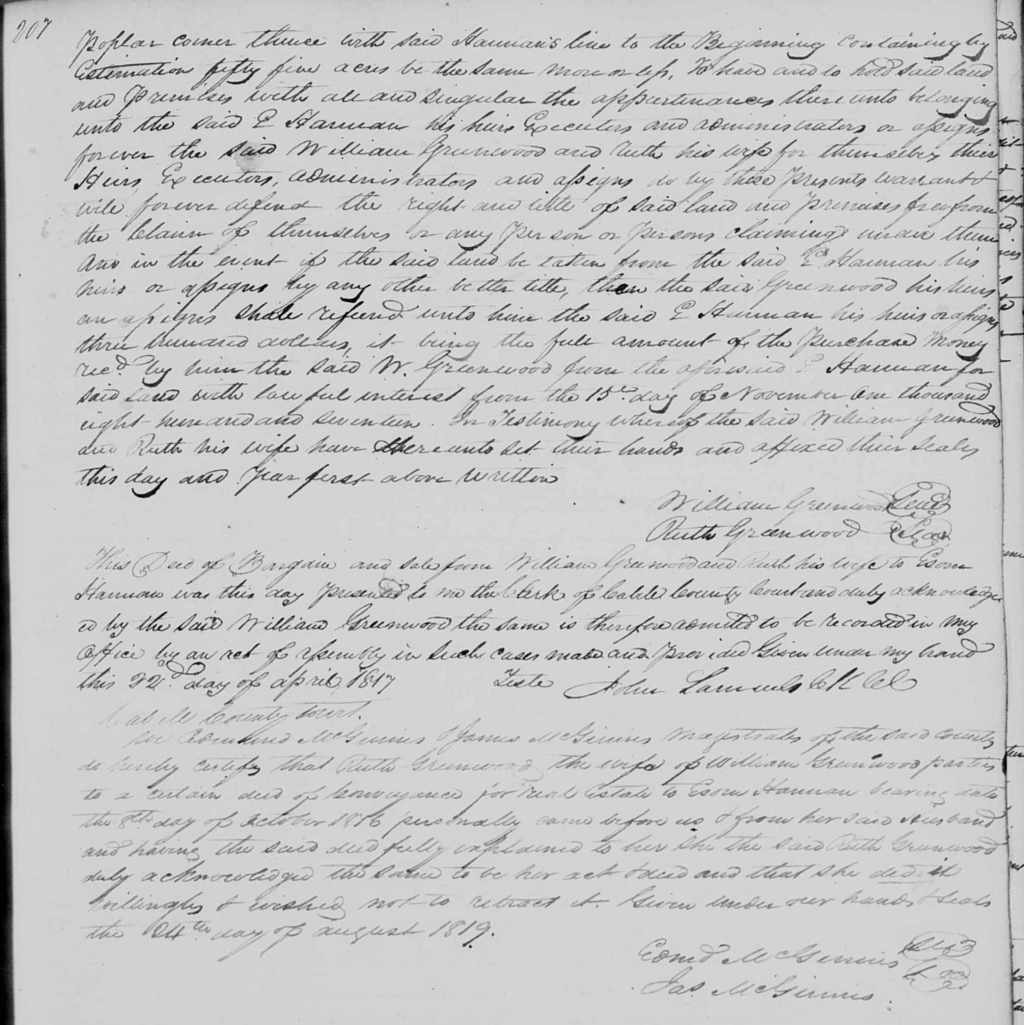 207
Poplar corner thence with said Hannan's line to the Beginning containing by
Estemation fifty five acres be the same more or less, To have and to hold said land
and Premises with all and singular the appurtenances there unto belonging
unto the said E Hannan his heirs Executors and administrators or assigns
forever the said William Greenwood and Ruth his wife for themselves their
Heirs Executors, administrators and assigns do by these Presents warrant &
will forever defend the right and title of said land and premises free from
the Claim of themselves or any Person or Persons claiming under them
And in the event if the said land be taken from the said E Hannan his
heirs or assigns by any other better title, then the said Greenwood his heirs
or assigns shall refund unto him the said E Hannan his heirs or assigns
three hundred dollars, it being the full amount of the Purchase Money
recd. by him the said W. Greenwood from the aforesaid E Hannan for
said land with lawful interest from the 15th day of November one thousand
eight hundred and seventeen. In Testimony whereof the said William Greenwood
and Ruth his wife have thereunto set their hands and affixed their seals
this day and year first above written
William Greenwood Seal
Ruth Greenwood Seal
This Deed of Bargain and sale from William Greenwood and Ruth his wife to Esom
Hannan was this day Presented to me the Clerk of Cabell County Court and duly acknowledg
ed by the said William Greenwood the same is therefore admited to be recorded in my
Office by an act of assembly in such cases made and Provided Given under my hand
this 22d day of april 1817 Teste John Samuels
Cabell County
We Edmund McGinnis & James McGinnis Magistrates of the said County
do hereby certify that Ruth Greenwood the wife of William Greenwood parties
to a certain deed of conveyance for real estate to Esom Hannan bearing date
the 8th day of October 1816 personally came before us & from her said Husband
and having the said deed fully explained to her she the said Ruth Greenwood
duly acknowledged the same to be her act & deed and that she did it
willingly & wished not to retract it. Given under our hands & seals
the 24th day of august 1819.
Edmd McGinnis Seal
Jas. McGinnis